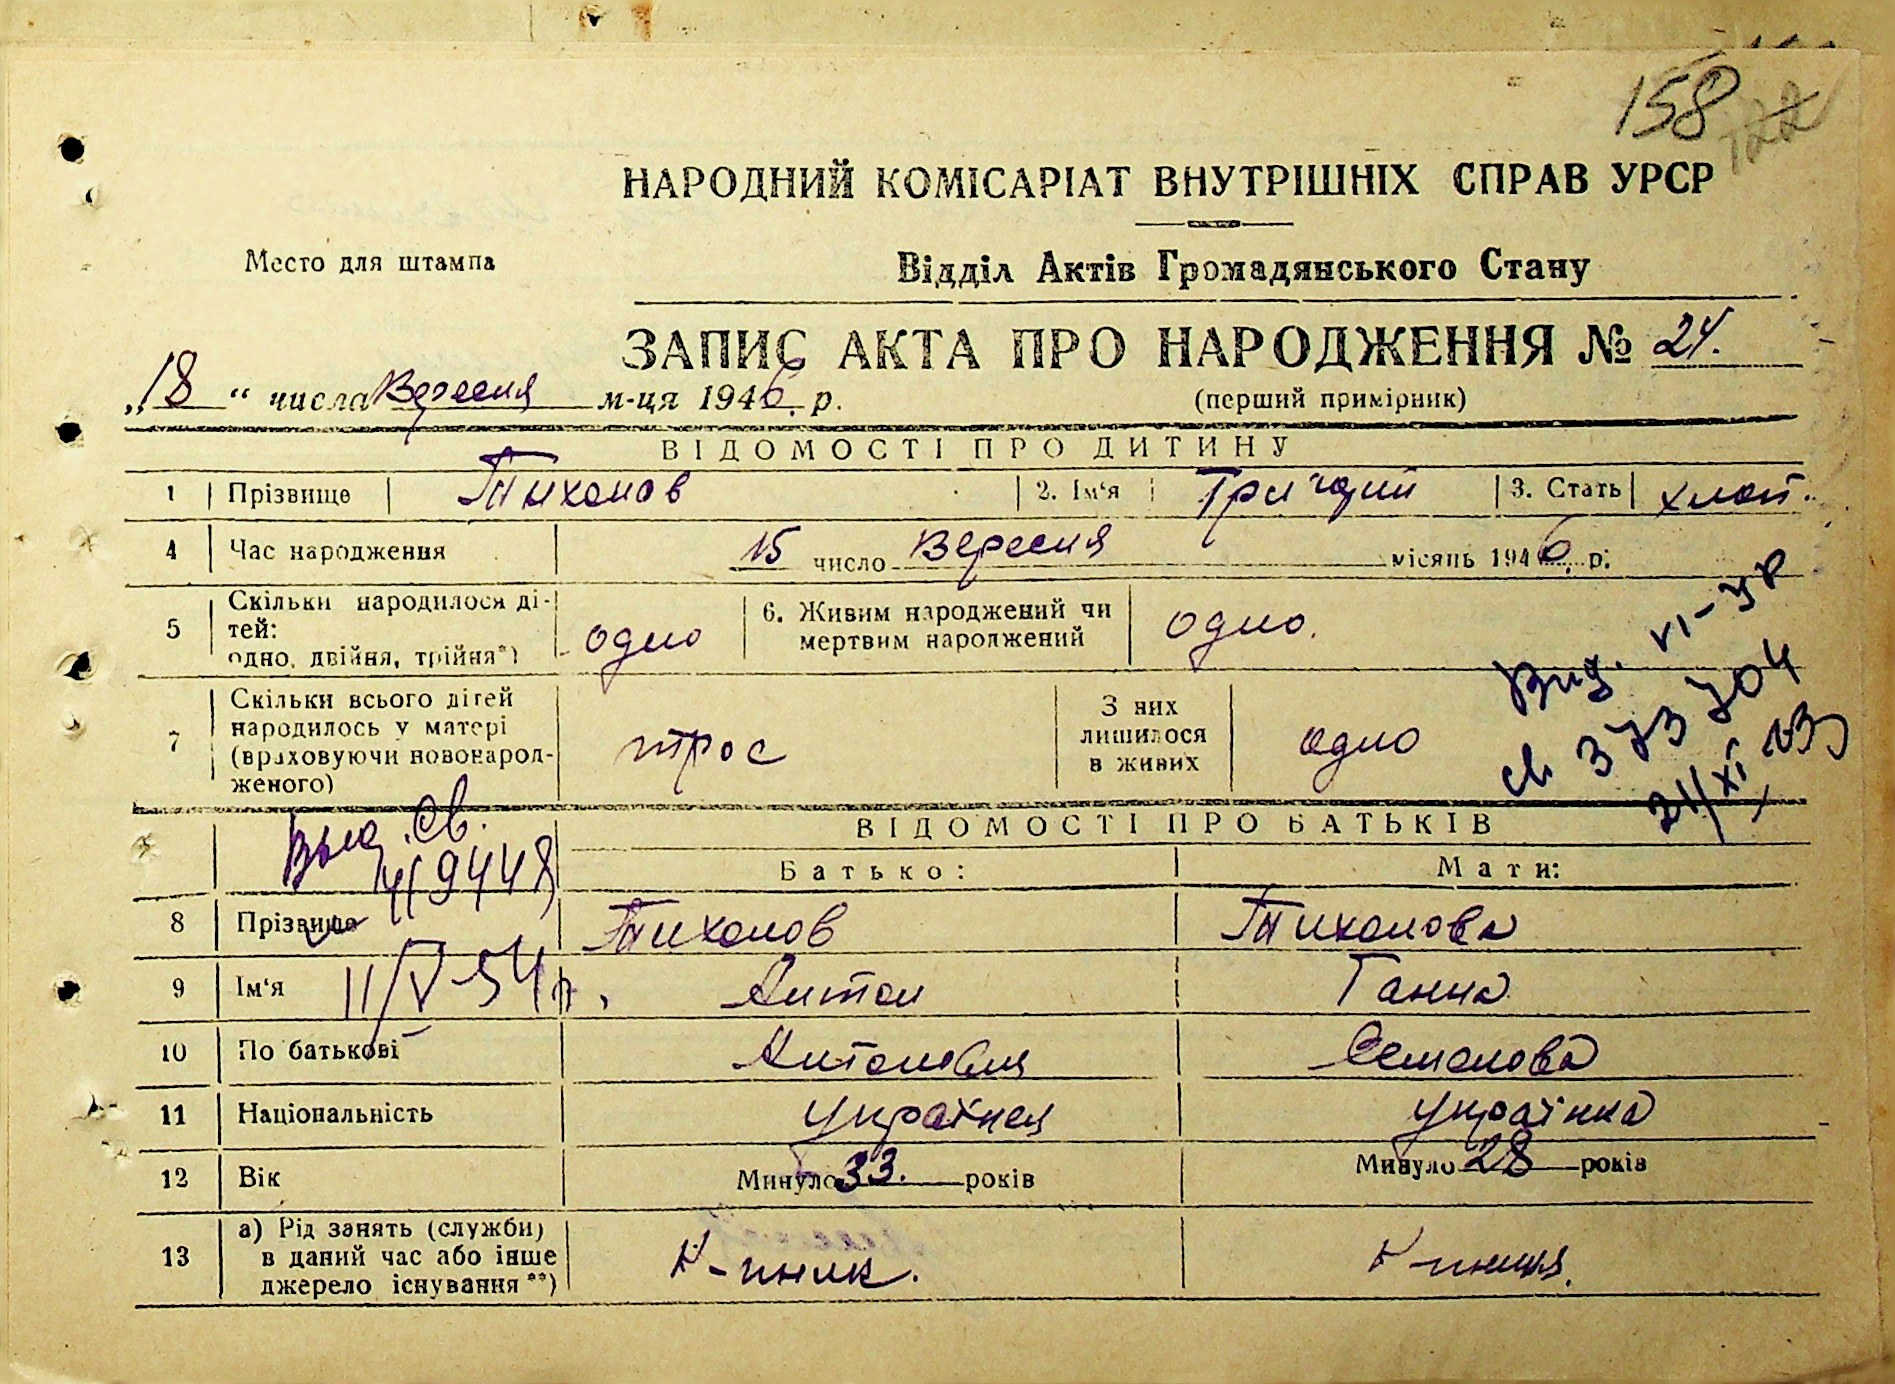 158
122
НАРОДНИЙ КОМІСАРІАТ ВНУТРІШНІХ СПРАВ УРСР
Место для штампа
Відділ Актів Громадянського Стану
ЗАПИС АКТА ПРО НАРОДЖЕННЯ № 24.
„18" числа Вересня м-ця 1946. р.
(перший примірник)
ВІДОМОСТІ ПРО ДИТИНУ
1 Прізвище Тихонов 2. Ім'я Григорий 3. Стать хлоп.
4 Час народження 15 число Вересня місянь 1946. р.
5 Скільки народилося ді-
тей:
одно, двійня, трійня*) одно
6. Живим народжений чи
мертвим народжений одно.
7 Скільки всього дітей
народилось у матері
(враховуючи новонарод-
женого) трос
З них
лишилося
в живих одно
Вид. VI-УР
св 373704
21/XI
ВІДОМОСТІ ПРО БАТЬКІВ
Выд. св.
419448
11/V-54 г.
Батько: Мати:
8 Прізвище Тихонов Тихонова
9 Ім'я Антон Ганна
10 По батькові Антонов Семенова
11 Національність українец українка
12 Вік Минуло 33. років Минуло 28 років
13 а) Рід занять (служби)
в даний час або інше
джерело існування **) К-пник. К-пниця.